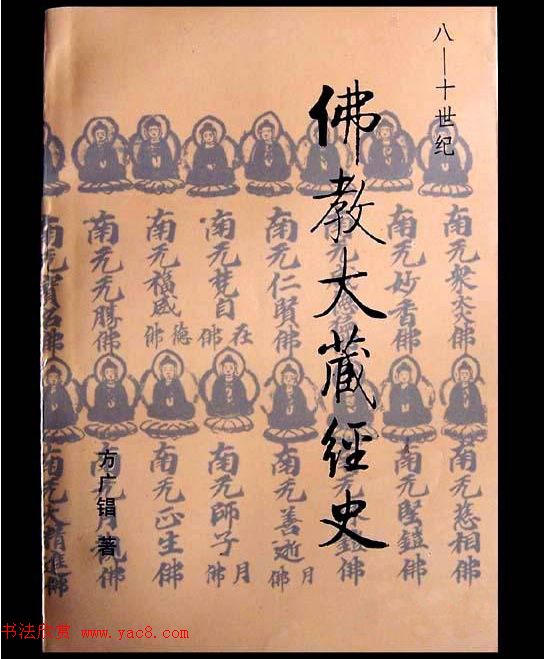 八—十世纪
佛教大藏經史
南无妙香佛
南无仁賢佛
南无梵自在佛
南无福威德佛
南无无勝佛
南无寶名佛
南无慈相佛
南无堅鎧佛
南无善逝月佛
南无師子月佛
南无正生佛
南无大精進佛
方广锠 著
书法欣赏 www.yac8.com